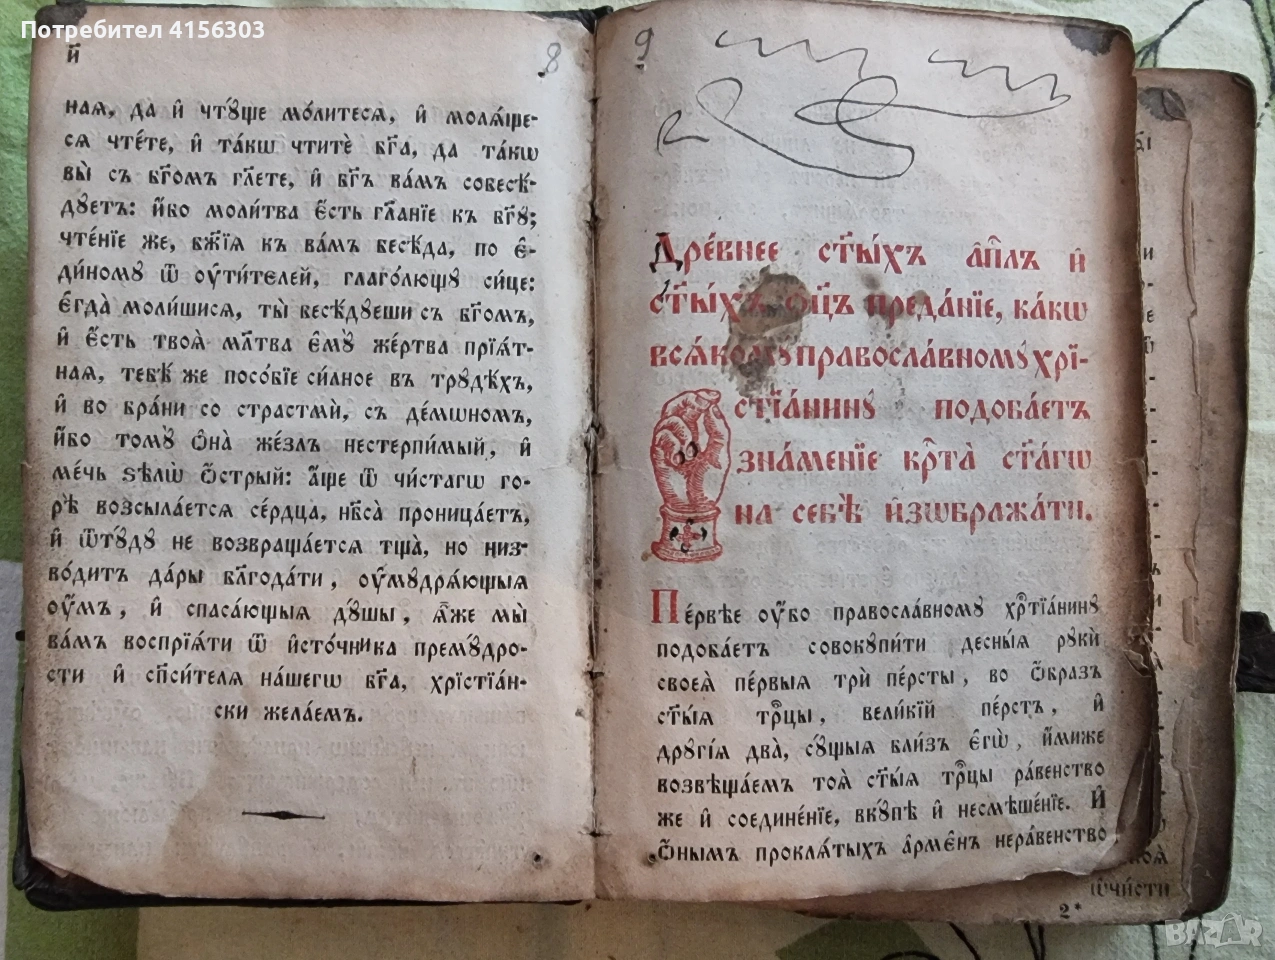 Потребител 4156303
и҃
8
ная, да и҆ чтꙋ́ще мо́литеся, и҆ моля́ще-
ся чте́те, и҆ та́кѡ чти́те бг҃а, да та́кѡ
вы̀ съ бг҃омъ гл҃ете, и҆ бг҃ъ ва́мъ собесѣ́-
дꙋетъ: и҆́бо моли́тва є҆́сть гл҃а́нїе къ бг҃ꙋ;
чте́нїе же, бж҃їѧ къ ва́мъ бесѣ́да, по є҆-
ди́номꙋ ѿ ᲂу҆чи́телей, глаго́лющꙋ си́це:
є҆гда̀ моли́шися, ты̀ бесѣ́дꙋеши съ бг҃омъ,
и҆ є҆́сть твоя̀ мл҃тва є҆мꙋ̀ же́ртва прїя́т-
ная, тебѣ́ же посо́бїе си́лное въ трꙋдѣ́хъ,
и҆ во бра́ни со страстмѝ, съ де́мѡномъ,
и҆́бо томꙋ̀ ѻ҆на̀ же́злъ нестерпи́мый, и҆
ме́чь ѕѣлѡ̀ ѻ҆́стрый: а҆́ще ѿ чи́стагѡ го-
рѣ̀ возсыла́ется се́рдца, нб҃са̀ проница́етъ,
и҆ ѿтꙋ́дꙋ не возвраща́ется тща̀, но низ-
во́дитъ да́ры бл҃года́ти, ᲂу҆мꙋдря́ющыя
ᲂу҆́мъ, и҆ спаса́ющыя дꙋ́шы, ꙗ҆́же мы̀
ва́мъ воспрїя́ти ѿ и҆сто́чника премꙋ́дро-
сти и҆ сп҃си́теля на́шегѡ бг҃а, хрїстїа́н-
ски жела́емъ.
9
Дре́внее ст҃ы́хъ а҆пⷭ҇лъ и҆
ст҃ы́хъ ѻ҆ц҃ъ преда́нїе, ка́кѡ
вся́комꙋ правосла́вномꙋ хрї-
стїа́нинꙋ подоба́етъ
зна́менїе крⷭ҇та̀ ст҃а́гѡ
на себѣ̀ и҆зѡбража́ти.
Пе́рвѣе ᲂу҆́бо правосла́вномꙋ хрⷭ҇тїа́нинꙋ
подоба́етъ совокꙋпи́ти десны́я рꙋкѝ
своея̀ пе́рвыя трѝ пе́рсты, во ѻ҆́бразъ
ст҃ы́я трⷪ҇цы, вели́кїй пе́рстъ, и҆
дрꙋгі́я два̀, сꙋ́щыя бли́зъ є҆гѡ̀, и҆́миже
возвѣща́емъ тоя̀ ст҃ы́я трⷪ҇цы ра́венство
же и҆ соедине́нїе, вкꙋ́пѣ и҆ несмѣше́нїе. И҆
ѻ҆́нымъ прокля́тыхъ а҆рме́нъ нера́венство
ѡ҆чи́сти
2*
BAZAR